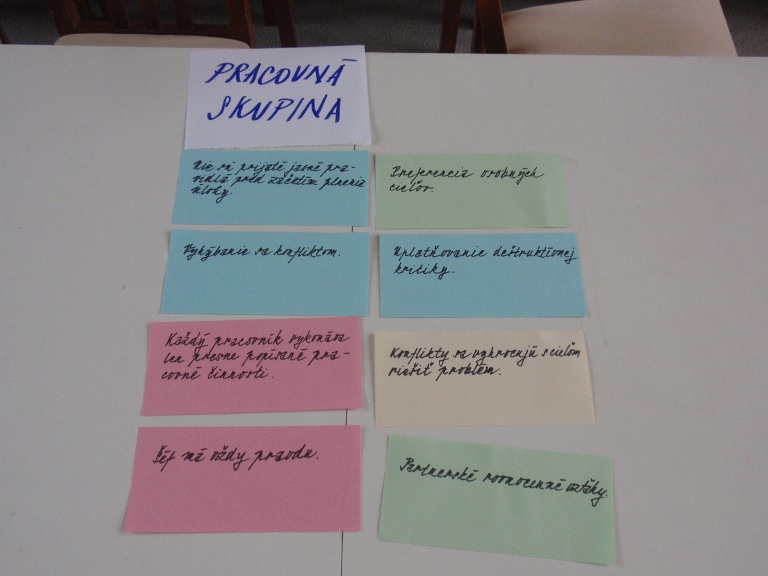 PRACOVNÁ
SKUPINA
Nie sú prijaté jasné pra-
vidlá pred začatím plnenia
úlohy.
Preferencia osobných
cieľov.
Vyhýbanie sa konfliktom.
Uplatňovanie deštruktívnej
kritiky.
Každý pracovník vykonáva
len presne popísané pra-
covné činnosti.
Konflikty sa vyhrocujú s cieľom
riešiť problém.
Šéf má vždy pravdu.
Partnerské rovnocenné vzťahy.